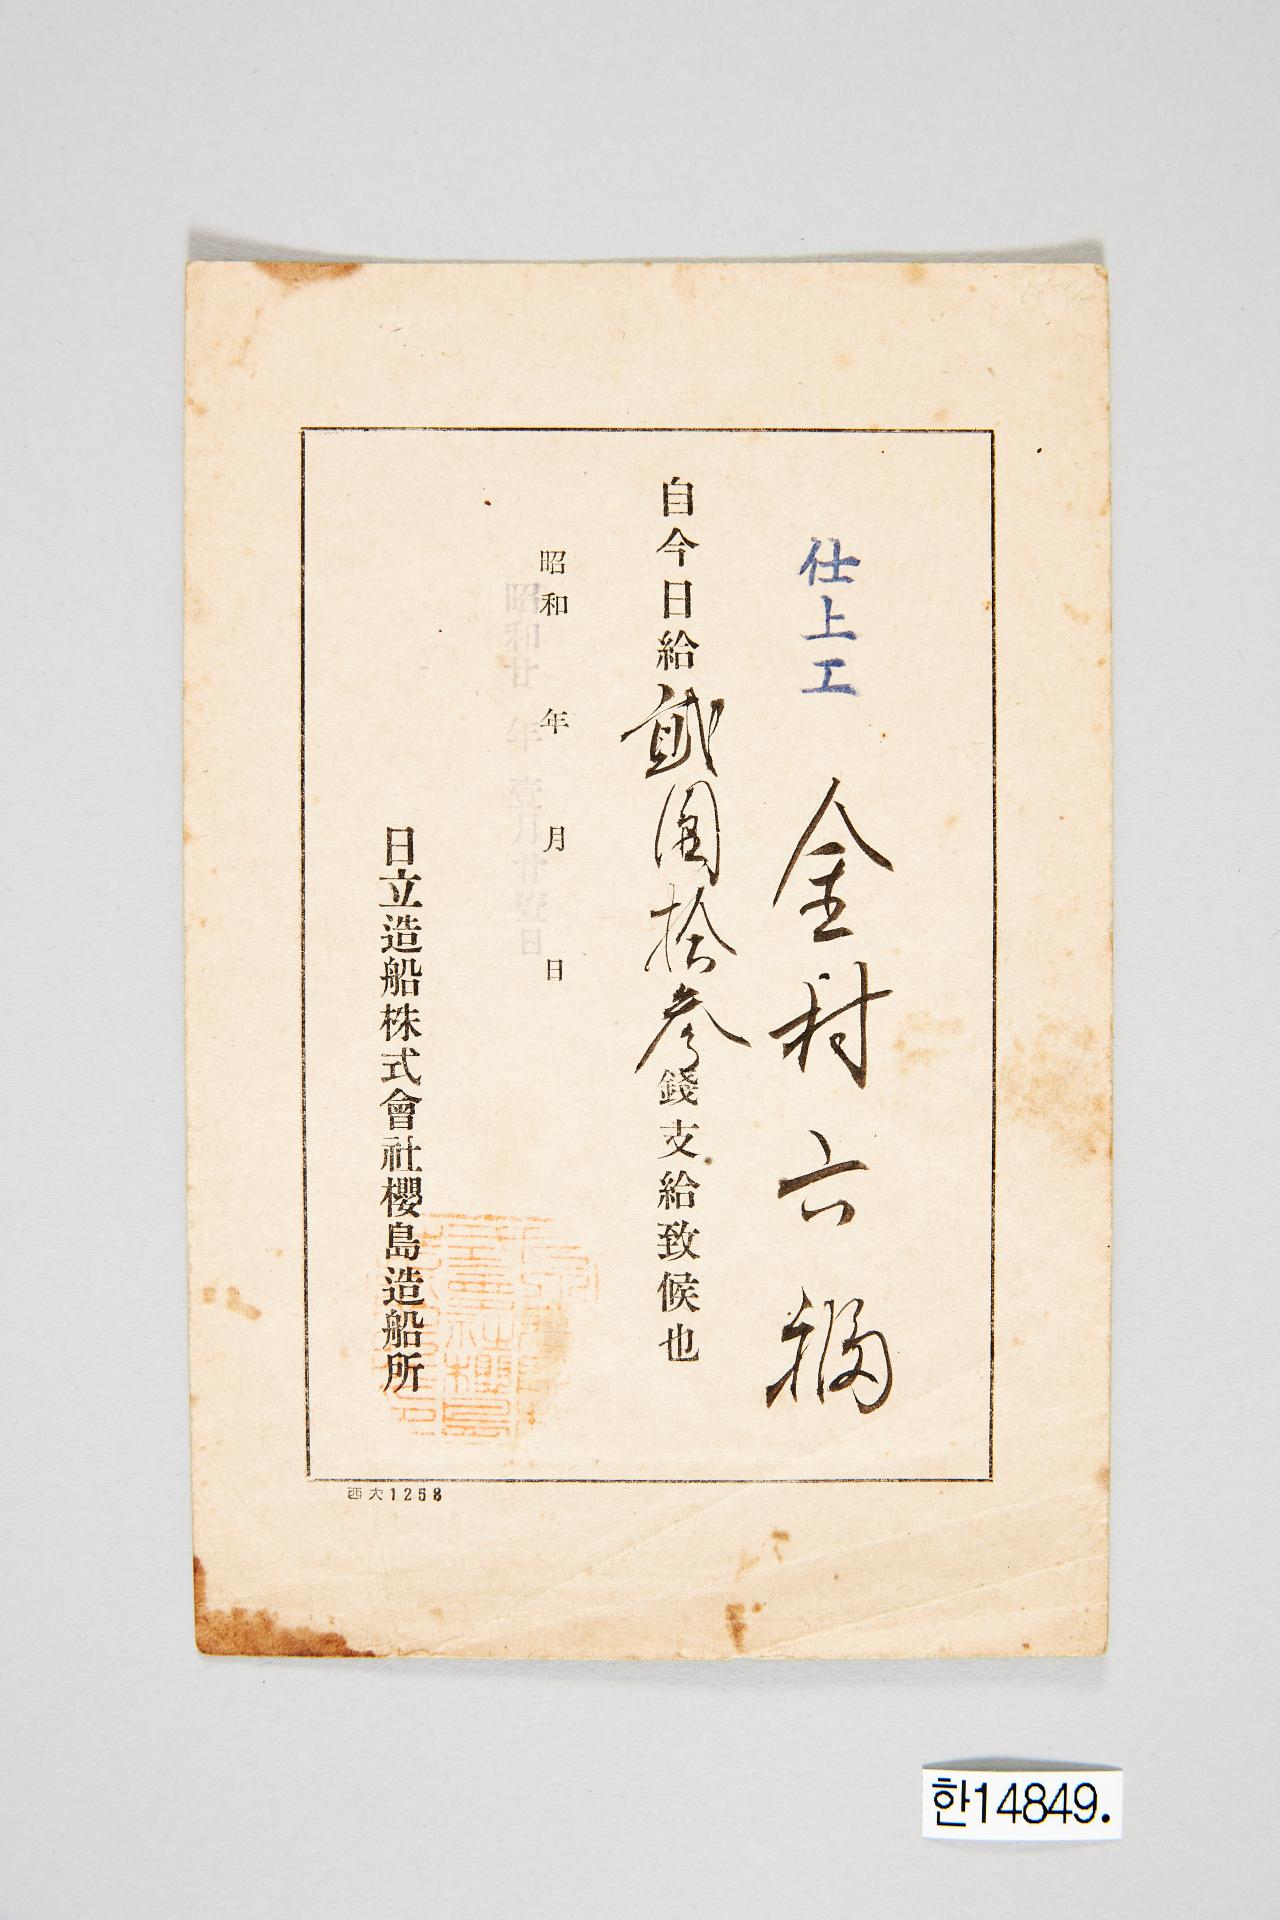 仕上工 金村六福
自今日給貳圓拾參錢支給致候也
昭和 年 月 日
昭和廿年壹月廿壹日
日立造船株式會社櫻島造船所
西大1258
한14849.